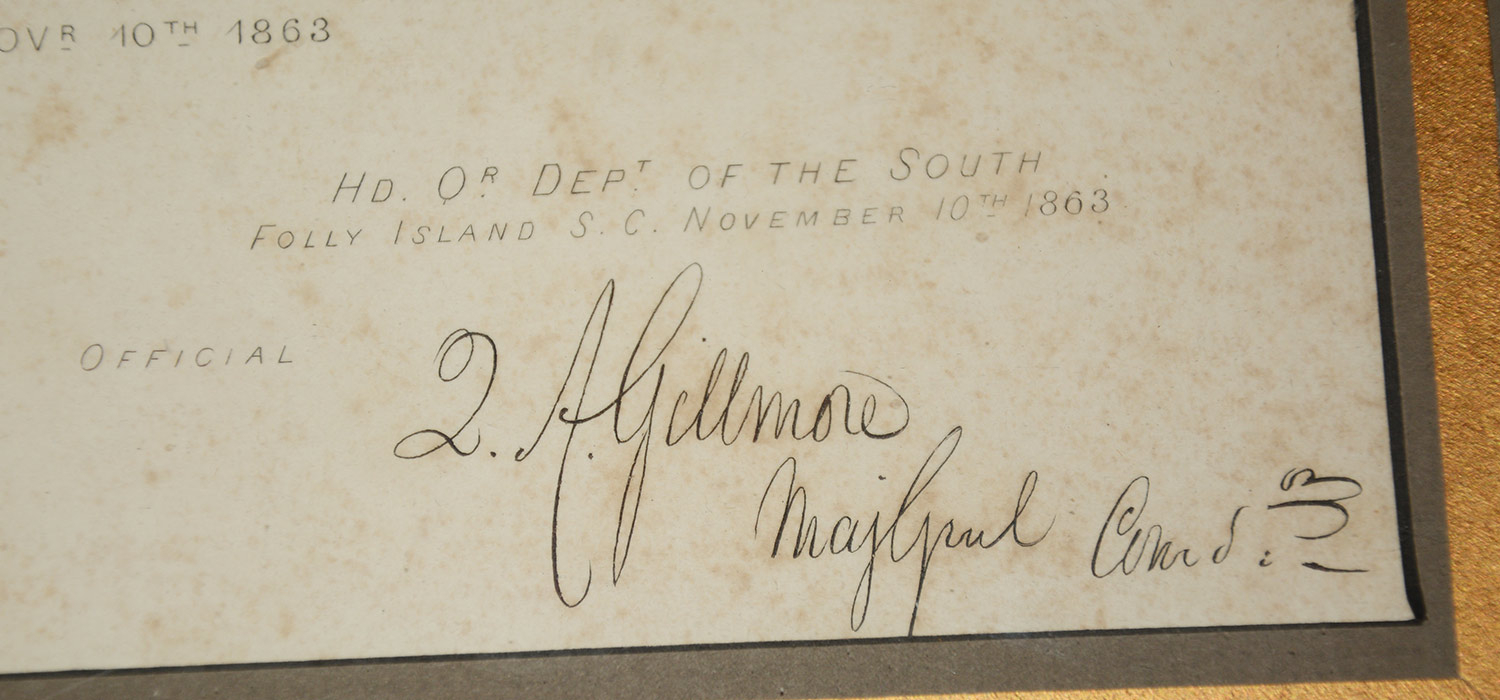 OVR 10TH 1863
HD. QR DEPT. OF THE SOUTH
FOLLY ISLAND S. C. NOVEMBER 10TH 1863
OFFICIAL
Q. A. Gillmore
Maj Genl Comd:g